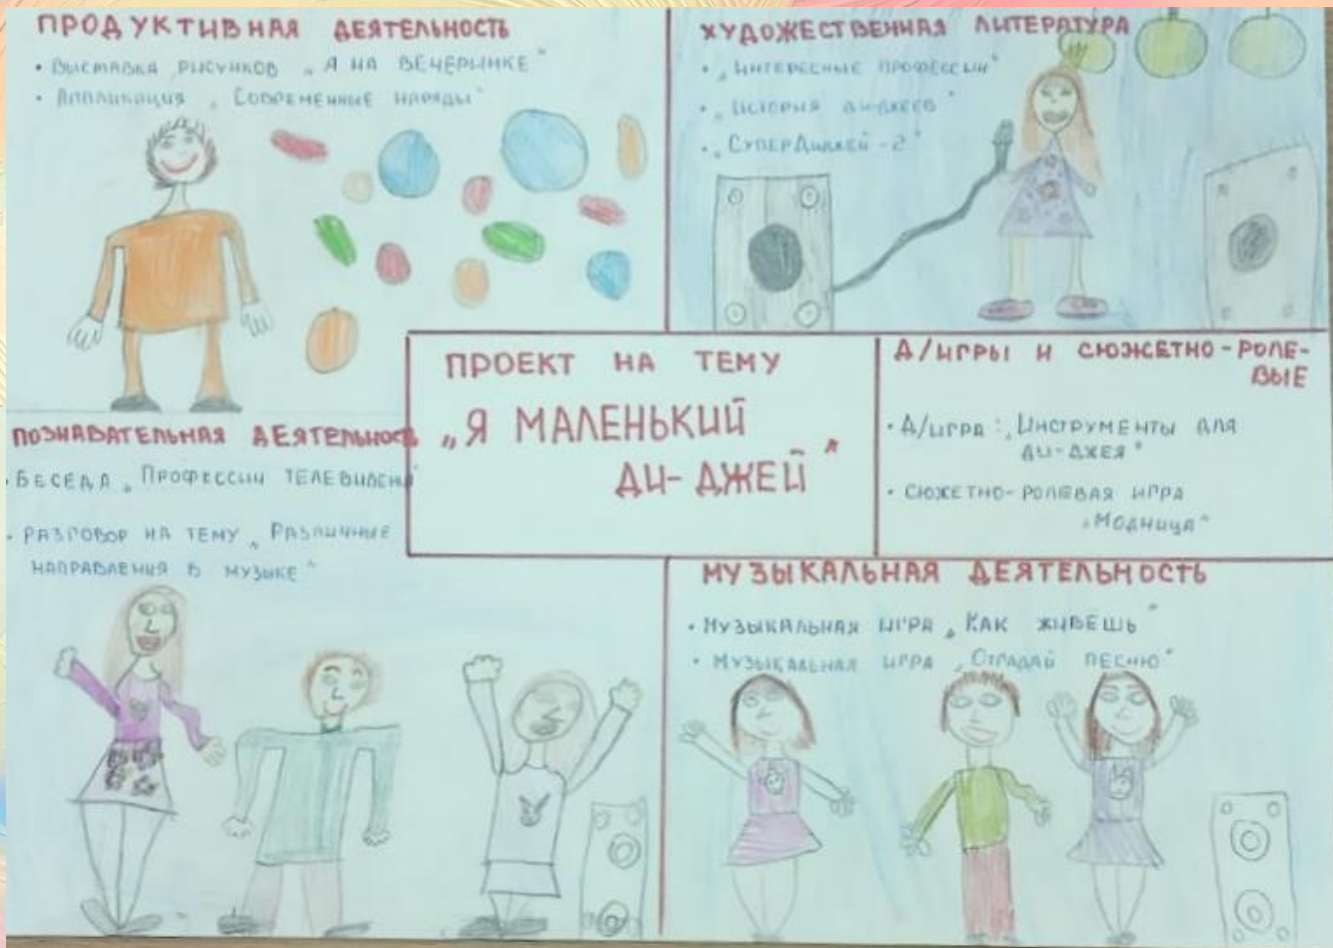 ПРОДУКТИВНАЯ ДЕЯТЕЛЬНОСТЬ
• ВЫСТАВКА РИСУНКОВ „Я НА ВЕЧЕРИНКЕ“
• АППЛИКАЦИЯ „СОВРЕМЕННЫЕ НАРЯДЫ“
ХУДОЖЕСТВЕННАЯ ЛИТЕРАТУРА
• „ИНТЕРЕСНЫЕ ПРОФЕССИИ“
• „ИСТОРИЯ ДИ-ДЖЕЕВ“
• „СУПЕРДИДЖЕЙ-2“
ПРОЕКТ НА ТЕМУ
„Я МАЛЕНЬКИЙ
ДИ-ДЖЕЙ“
Д/ИГРЫ И СЮЖЕТНО-РОЛЕ-
ВЫЕ
• Д/ИГРА: „ИНСТРУМЕНТЫ ДЛЯ
ДИ-ДЖЕЯ“
• СЮЖЕТНО-РОЛЕВАЯ ИГРА
„МОДНИЦА“
ПОЗНАВАТЕЛЬНАЯ ДЕЯТЕЛЬНОСТЬ
• БЕСЕДА „ПРОФЕССИИ ТЕЛЕВИДЕНИ
• РАЗГОВОР НА ТЕМУ „РАЗЛИЧНЫЕ
НАПРАВЛЕНИЯ В МУЗЫКЕ“
МУЗЫКАЛЬНАЯ ДЕЯТЕЛЬНОСТЬ
• МУЗЫКАЛЬНАЯ ИГРА „КАК ЖИВЁШЬ“
• МУЗЫКАЛЬНАЯ ИГРА „ОТГАДАЙ ПЕСНЮ“